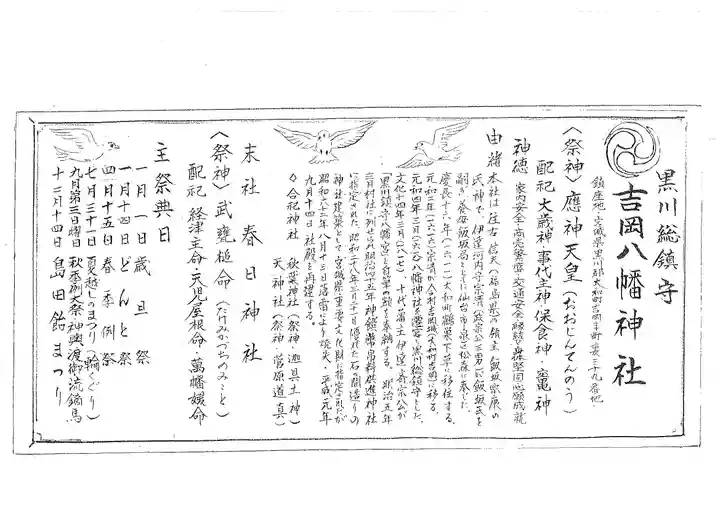 黒川総鎮守
吉岡八幡神社
鎮座地 宮城県黒川郡大和町吉岡字町裏三十九番地
〈祭神〉應神天皇(おおじんてんのう)
配祀 大歳神・事代主神・保食神・竈神
神徳 家内安全・商売繁盛・交通安全・縁結び・身体堅固・当願成就
由緒 本社は往古 信夫(福島県)の領主 飯坂宗康の
氏神で、伊達河内守宗清(政宗公三男)が飯坂氏を
嗣ぎ、養母飯坂局とともに仙台市泉区松森に奉じた。
慶長十六年(一六一一)大和町鶴巣下草に移住する。
元和二年(一六一六)宗清が今村吉岡城(大和町吉岡)に移る。
元和四年三月(一六一八)八幡神社を遷宮し黒川総鎮守とした。
文化十四年三月(一八一七) 十代藩主伊達斉宗公が
「黒川鎮守八幡宮」と自筆の額を奉納する。 明治五年
三月村社に列せられ明治四五年神饌幣帛料供進神社
に指定された。昭和二十八年三月三十一日優れた石の間造りの
神社建築として宮城県重要文化財に指定されたが
昭和六二年八月十三日落雷により焼失・平成元年
九月十四日社殿を再建する。
◊ 合祀神社 秋葉神社(祭神・迦具土神)
天神社(祭神・菅原道真)
末社 春日神社
〈祭神〉武甕槌命(たけみかづちのみこと)
配祀 経津主命・天児屋根命・萬幡媛命
主祭典日
一月一日 歳旦祭
一月十四日 どんと祭
四月十五日 春季例祭
七月三十一日 夏越しのまつり(輪くぐり)
九月第三日曜日 秋季例大祭 神輿渡御 流鏑馬
十二月十四日 島田飴まつり